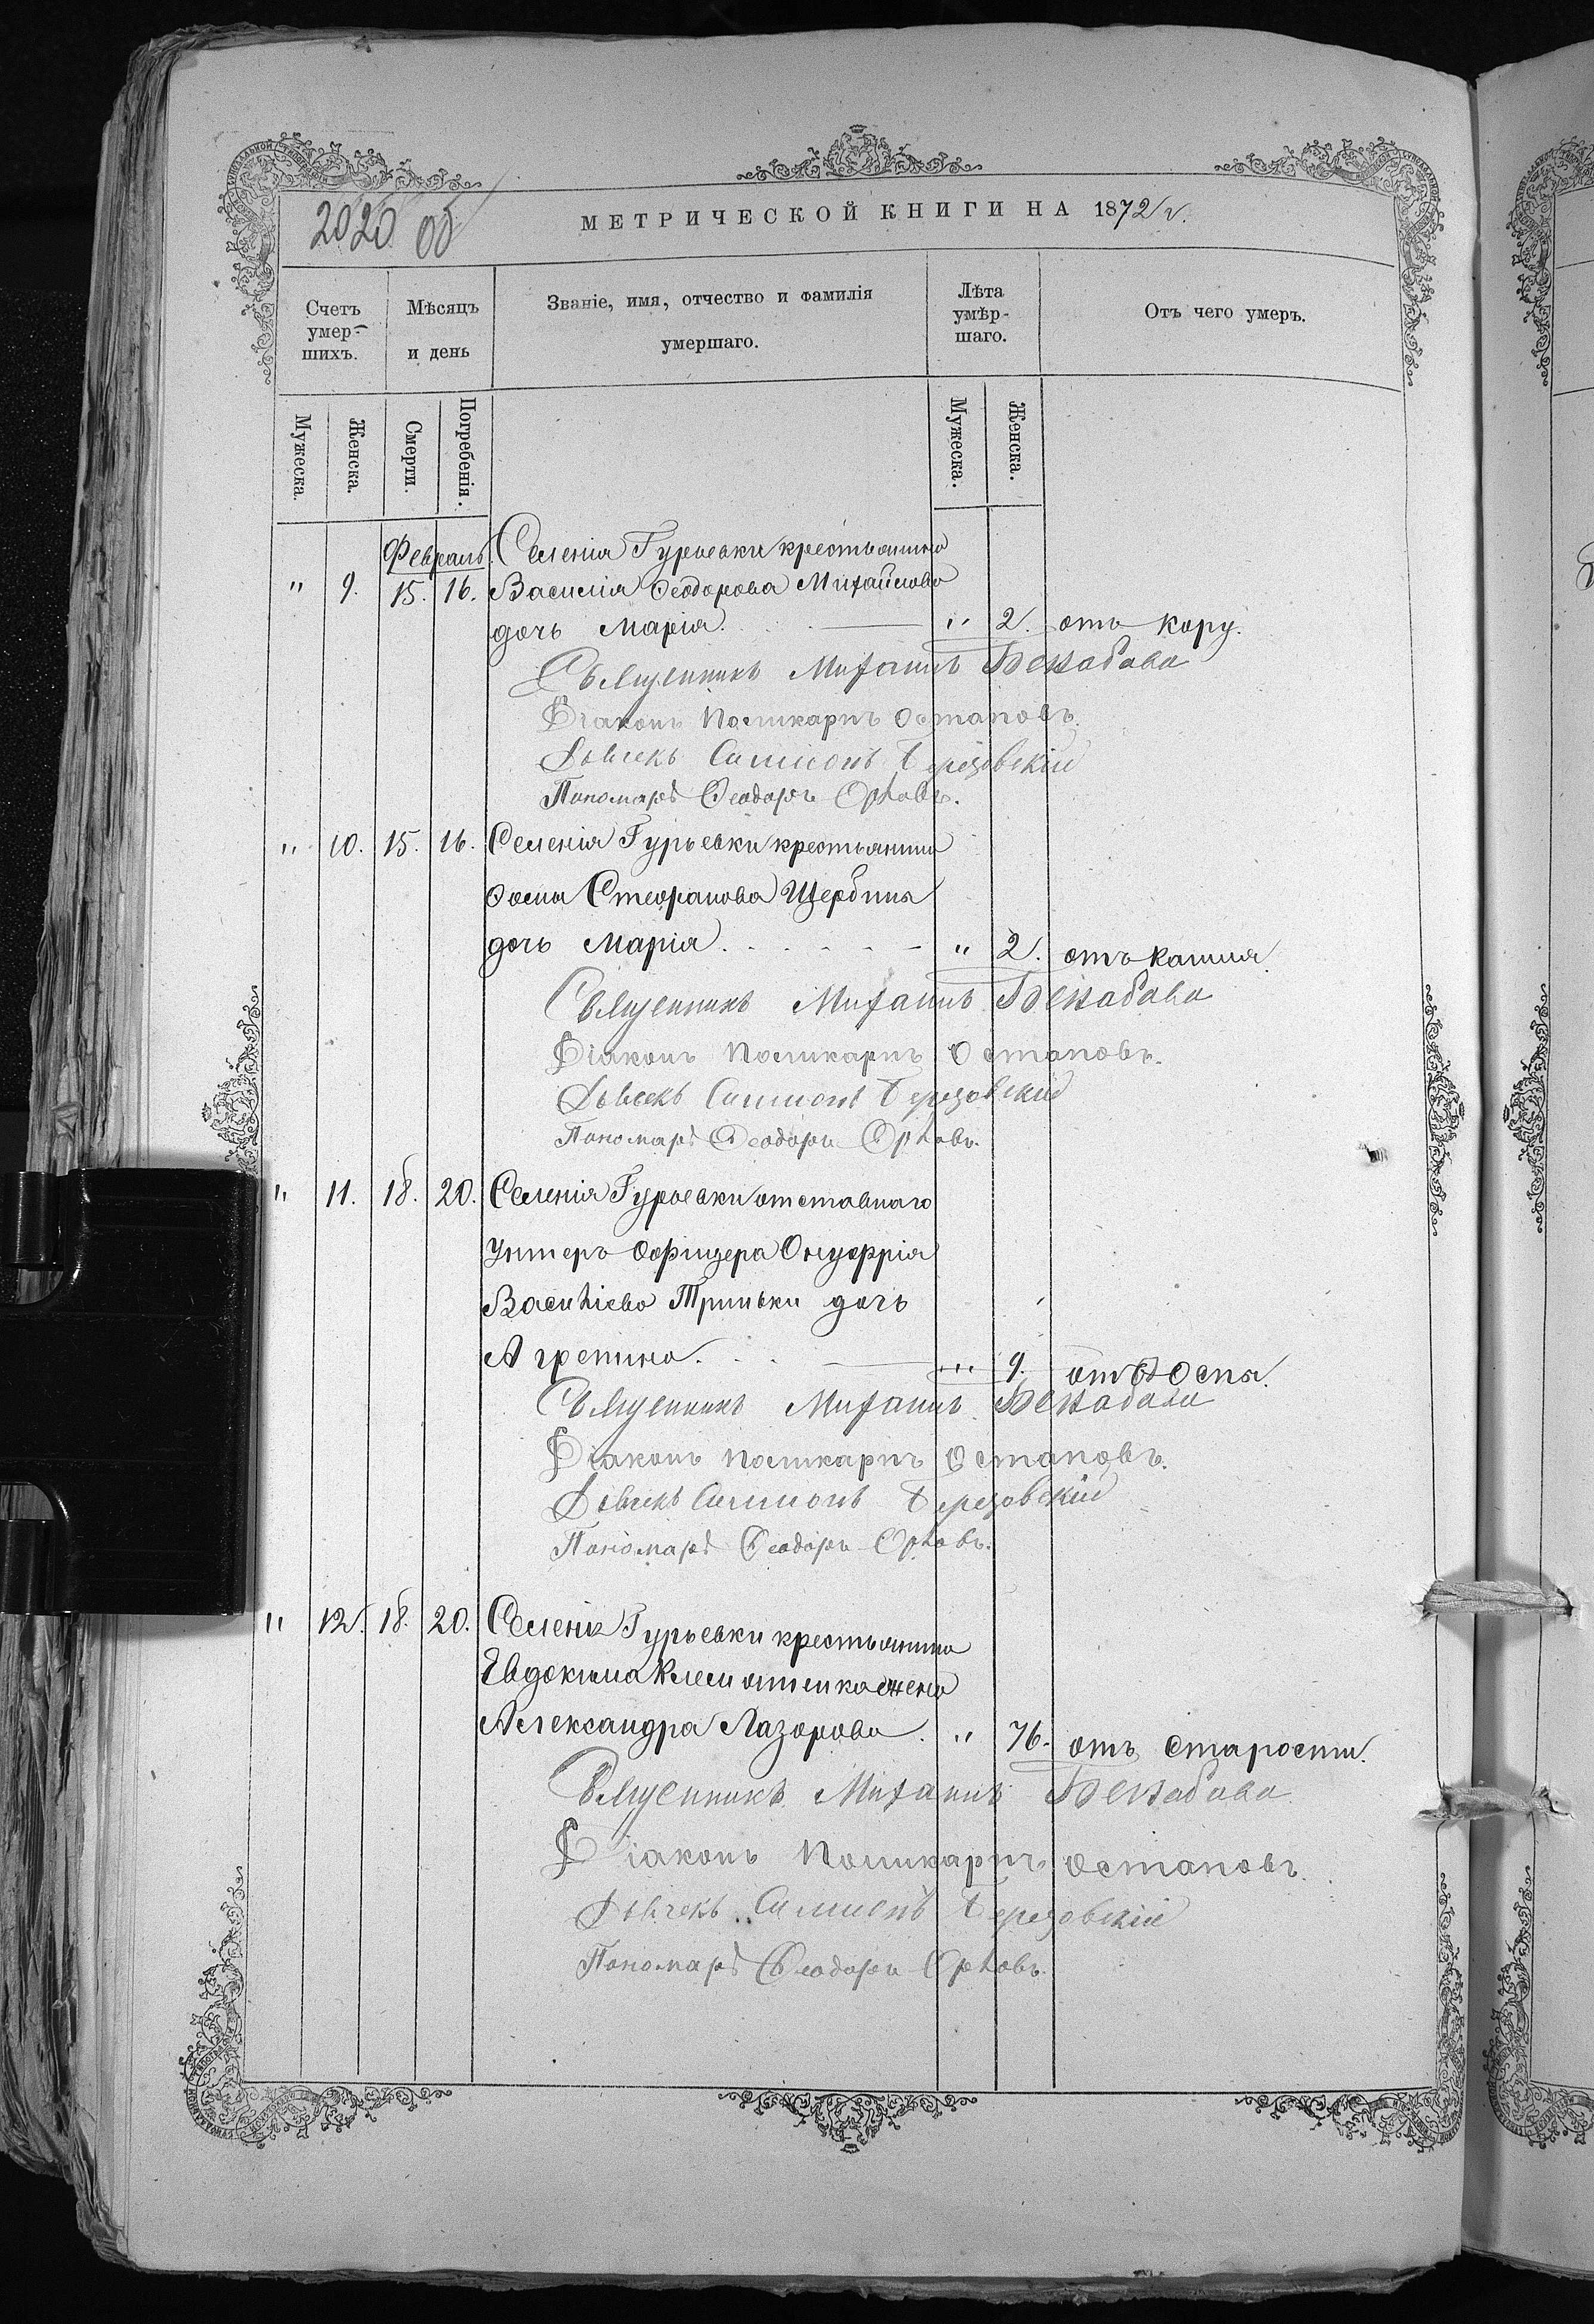 2020 об
МЕТРИЧЕСКОЙ КНИГИ НА 1872 г.
Счетъ умер-шихъ.
Мѣсяцъ и день
Званіе, имя, отчество и фамилія умершаго.
Лѣта умѣр-шаго.
Отъ чего умеръ.
Мужеска. Женска. Смерти. Погребенія. Мужеска. Женска.
Февраль. Селенія Гурьевки крестьянина
" 9. 15. 16. Василія Ѳеодорова Михайлова
дочь Марія. " 2. отъ кору.
Священникъ Михаилъ
Діаконъ Поликарпъ Остаповъ.
Дьячекъ Симеонъ Березовскій
Пономарь Ѳеодоръ Орловъ.
" 10. 15. 16. Селенія Гурьевки крестьянина
Ѳомы Стефанова Щербины
дочь Марія. " 2. отъ кашля.
Священникъ Михаилъ
Діаконъ Поликарпъ Остаповъ.
Дьячекъ Симеонъ Березовскій
Пономарь Ѳеодоръ Орловъ.
" 11. 18. 20. Селенія Гурьевки отставнаго
Унтеръ Оофицера Онуфрія
Васильева Гриньки дочь
Агрепина. " 9. отъ Оспы.
Священникъ Михаилъ
Діаконъ Поликарпъ Остаповъ.
Дьячекъ Симеонъ Березовскій
Пономарь Ѳеодоръ Орловъ.
" 12. 18. 20. Селенія Гурьевки крестьянина
Евдокима жена
Александра Лазорова. " 76. отъ старости.
Священникъ Михаилъ
Діаконъ Поликарпъ Остаповъ.
Дьячекъ Симеонъ Березовскій
Пономарь Ѳеодоръ Орловъ.